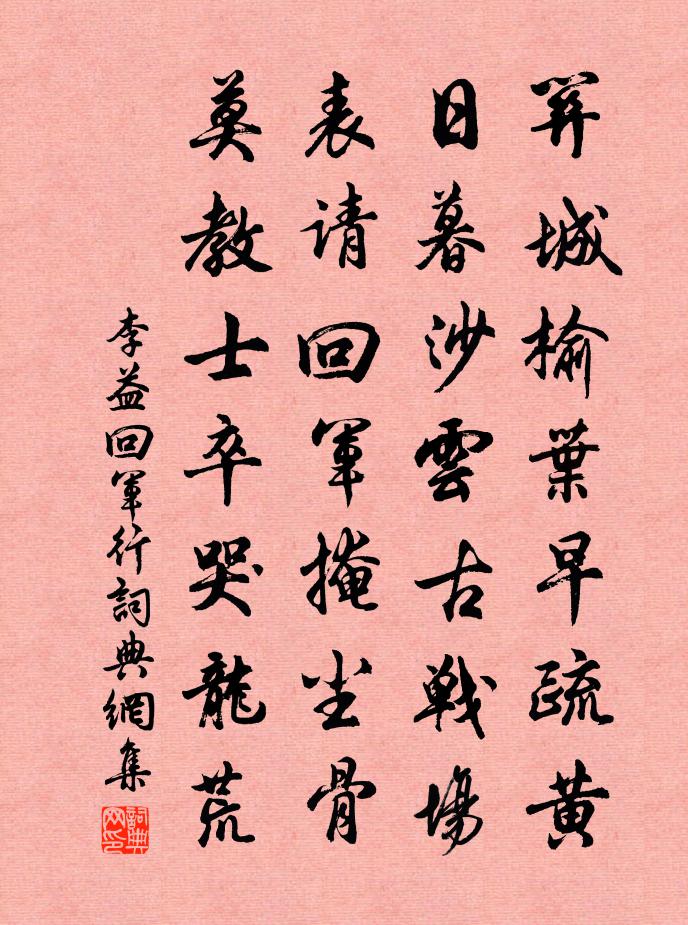 关城榆葉早疏黄
日暮沙雲古戦場
表请回軍掩尘骨
莫教士卒哭龍荒
李益回軍行詞典網集
詞典网印